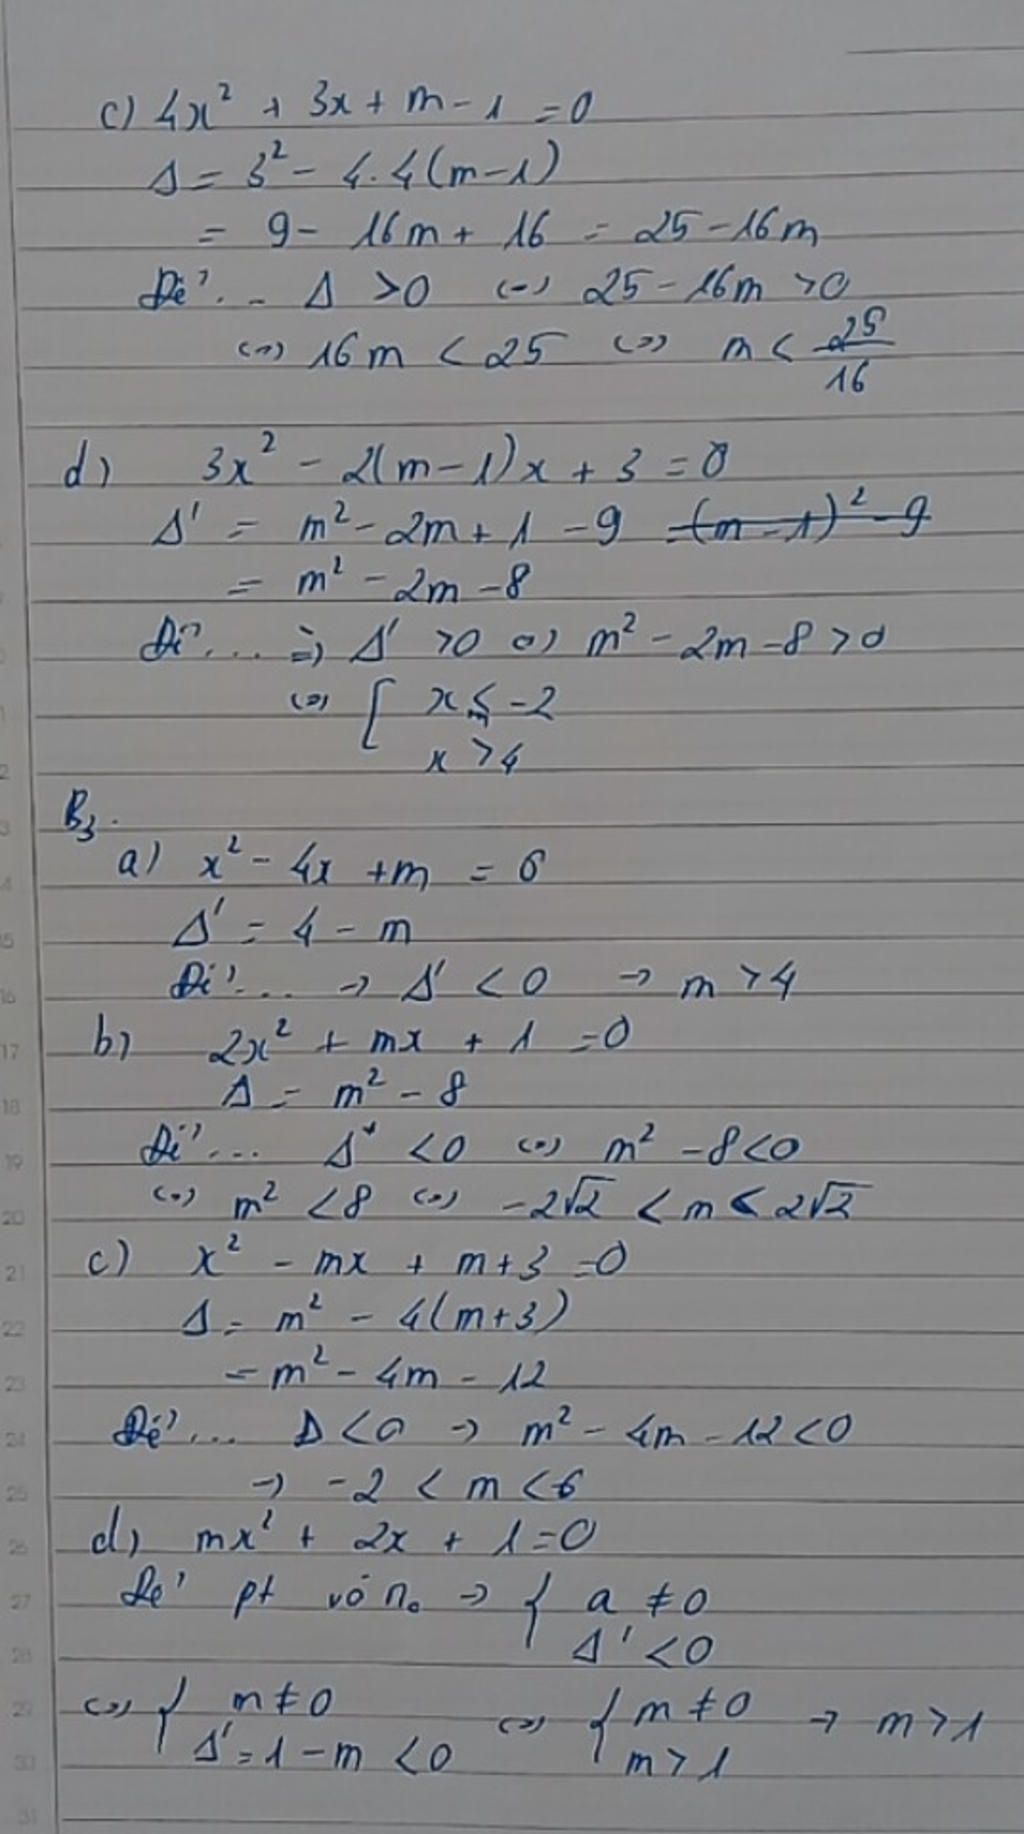 c) 4x² + 3x + m - 1 = 0
Δ = 3² - 4.4(m-1)
= 9 - 16m + 16 = 25 - 16m
Để ... Δ > 0 (=) 25 - 16m > 0
(=) 16m < 25 (=) m < 25/16
d) 3x² - 2(m-1)x + 3 = 0
Δ' = m² - 2m + 1 - 9 = (m-1)² - 9
= m² - 2m - 8
Để ... => Δ' > 0 (=) m² - 2m - 8 > 0
(=) [ x < -2
x > 4
B3.
a) x² - 4x + m = 0
Δ' = 4 - m
Để ... → Δ' < 0 → m > 4
b) 2x² + mx + 1 = 0
Δ = m² - 8
Để ... Δ < 0 (=) m² - 8 < 0
(=) m² < 8 (=) -2√2 < m < 2√2
c) x² - mx + m + 3 = 0
Δ = m² - 4(m+3)
= m² - 4m - 12
Để ... Δ < 0 → m² - 4m - 12 < 0
→ -2 < m < 6
d) mx² + 2x + 1 = 0
Để pt vô n₀ → { a ≠ 0
Δ' < 0
(=) { m ≠ 0 (=) { m ≠ 0 → m > 1
Δ' = 1 - m < 0 m > 1